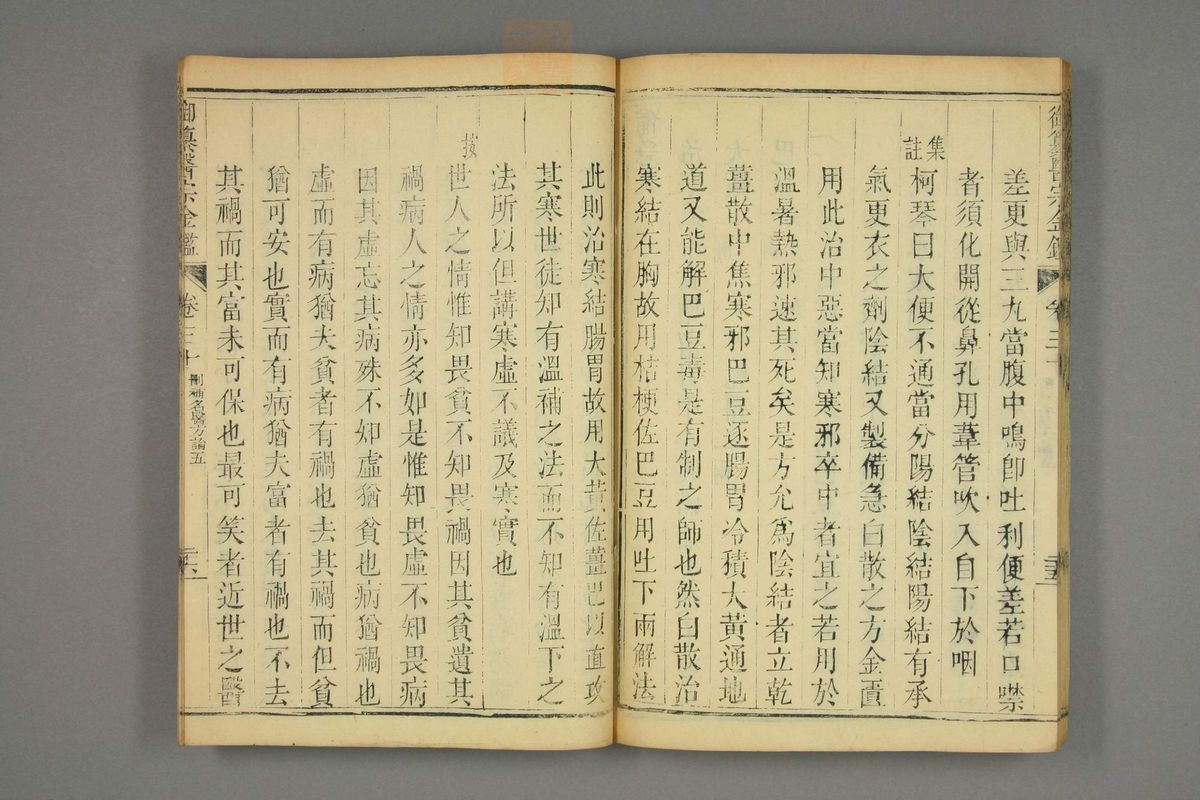 差更與三丸當腹中鳴卽吐利便差若口噤
者須化開從鼻孔用葦管吹入自下於咽
集註
柯琴曰大便不通當分陽結陰結陽結有承
氣更衣之劑陰結又製備急白散之方金匱
用此治中惡當知寒邪卒中者宜之若用於
溫暑熱邪速其死矣是方允爲陰結者立乾
薑散中焦寒邪巴豆逐腸胃冷積大黃通地
道又能解巴豆毒是有制之師也然白散治
寒結在胸故用桔梗佐巴豆用吐下兩解法
此則治寒結腸胃故用大黃佐薑巴以直攻
其寒世徒知有溫補之法而不知有溫下之
法所以但講寒虛不議及寒實也
按
世人之情惟知畏貧不知畏禍因其貧遺其
禍病人之情亦多如是惟知畏虛不知畏病
因其虛忘其病殊不知虛猶貧也病猶禍也
虛而有病猶夫貧者有禍也去其禍而但貧
猶可安也實而有病猶夫富者有禍也不去
其禍而其富未可保也最可笑者近世之醫
御纂醫宗金鑑
卷三十
刪補名醫方論五